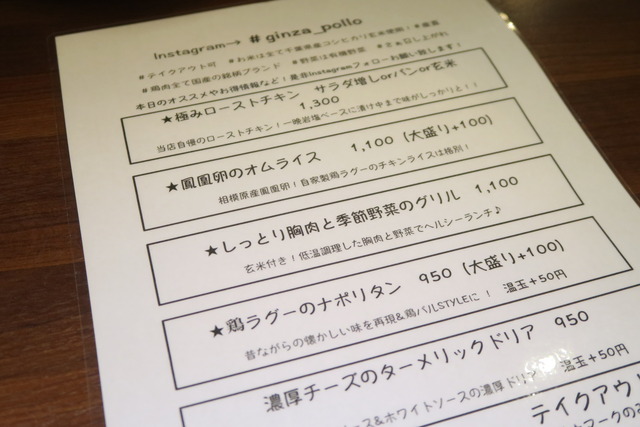 Instagram→ #ginza_pollo
#テイクアウト可 #お米は全て千葉県産コシヒカリ玄米使用!
#鶏肉全て国産の銘柄ブランド #野菜は有機野菜 #さぁ召し上がれ
本日のオススメやお得情報など!是非Instagramフォローお願い致します!
★極みローストチキン サラダ増しorパンor玄米
1,300
当店自慢のローストチキン!一晩岩塩ベースに漬け中まで味がしっかりと!!
★鳳凰卵のオムライス 1,100 (大盛り+100)
相模原産鳳凰卵!自家製鶏ラグーのチキンライスは格別!
★しっとり胸肉と季節野菜のグリル 1,100
玄米付き!低温調理した胸肉と野菜でヘルシーランチ♪
★鶏ラグーのナポリタン 950 (大盛り+100)
昔ながらの懐かしい味を再現&鶏バルSTYLEに! 温玉+50円
濃厚チーズのターメリックドリア 950
ース&ホワイトソースの濃厚ドリア 温玉+50円
テイクアウ